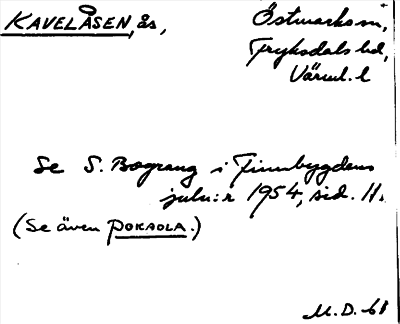 KAVELÅSEN, ås,
Östmarks sn,
Fryksdals hd,
Värml. l
Se S. Bograng i Finnbygdens
juln:r 1954, sid. 11.
(Se även POKAOLA.)
M.D. -61